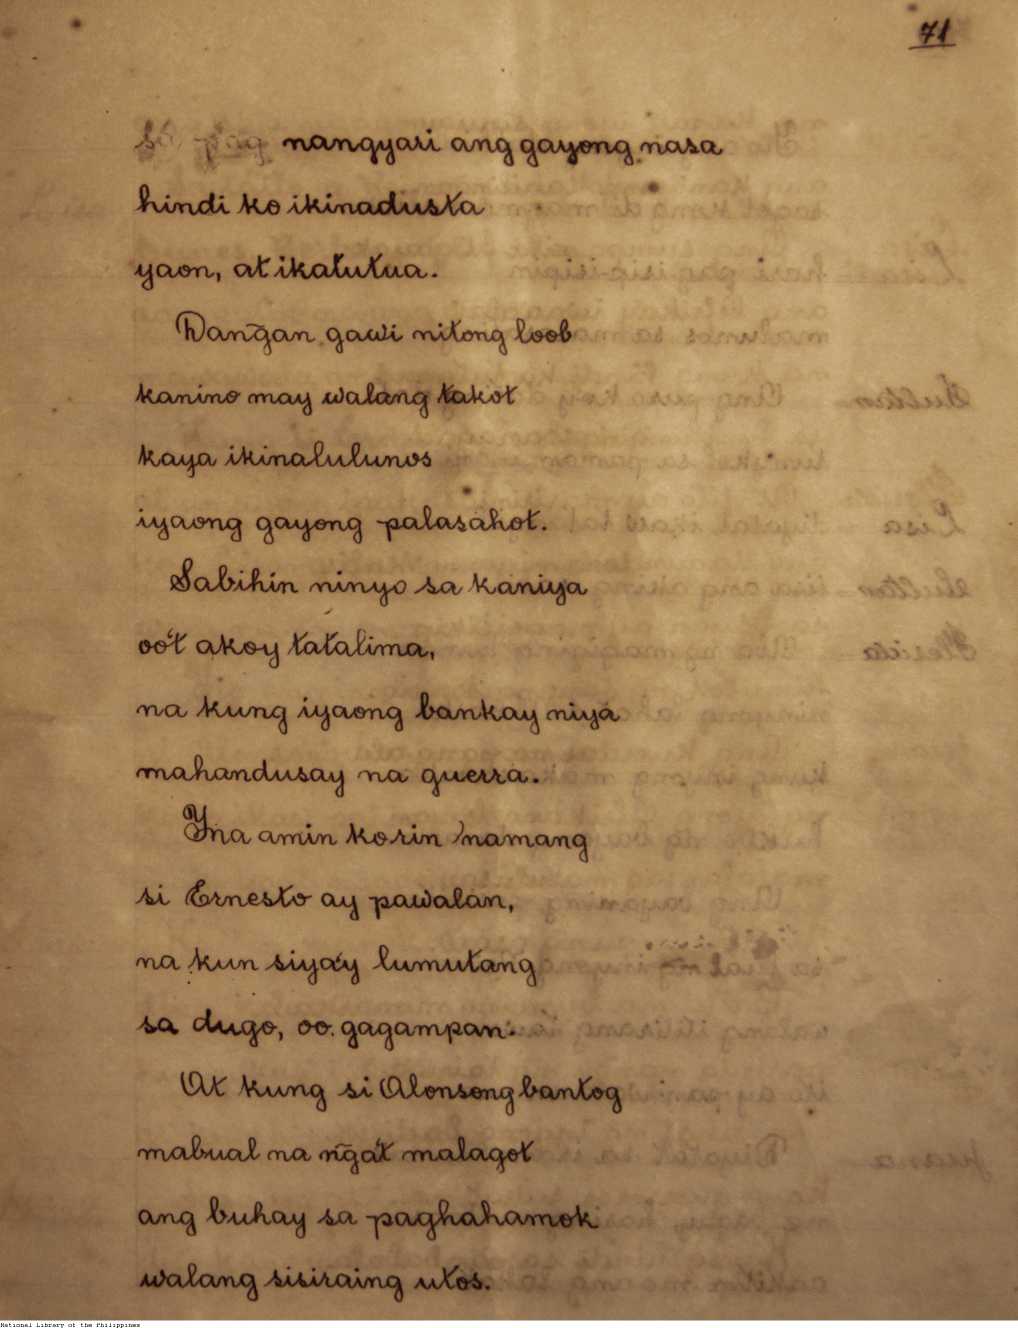 71
nangyari ang gayong nasa
hindi ko ikinadusta
yaon, at ikatutua.
Dañgan gawi nitong loob
kanino may walang takot
kaya ikinalulunos
iyaong gayong palasahot.
Sabihin ninyo sa kaniya
oo't akoy tatalima,
na kung iyaong bankay niya
mahandusay na guerra.
Yna amin ko rin namang
si Ernesto ay pawalan,
na kun siya'y lumutang
sa dugo, oo. gagampan.
At kung si Alonsong bantog
mabual na ñga't malagot
ang buhay sa paghahamok
walang sisiraing utos.
National Library of the Philippines